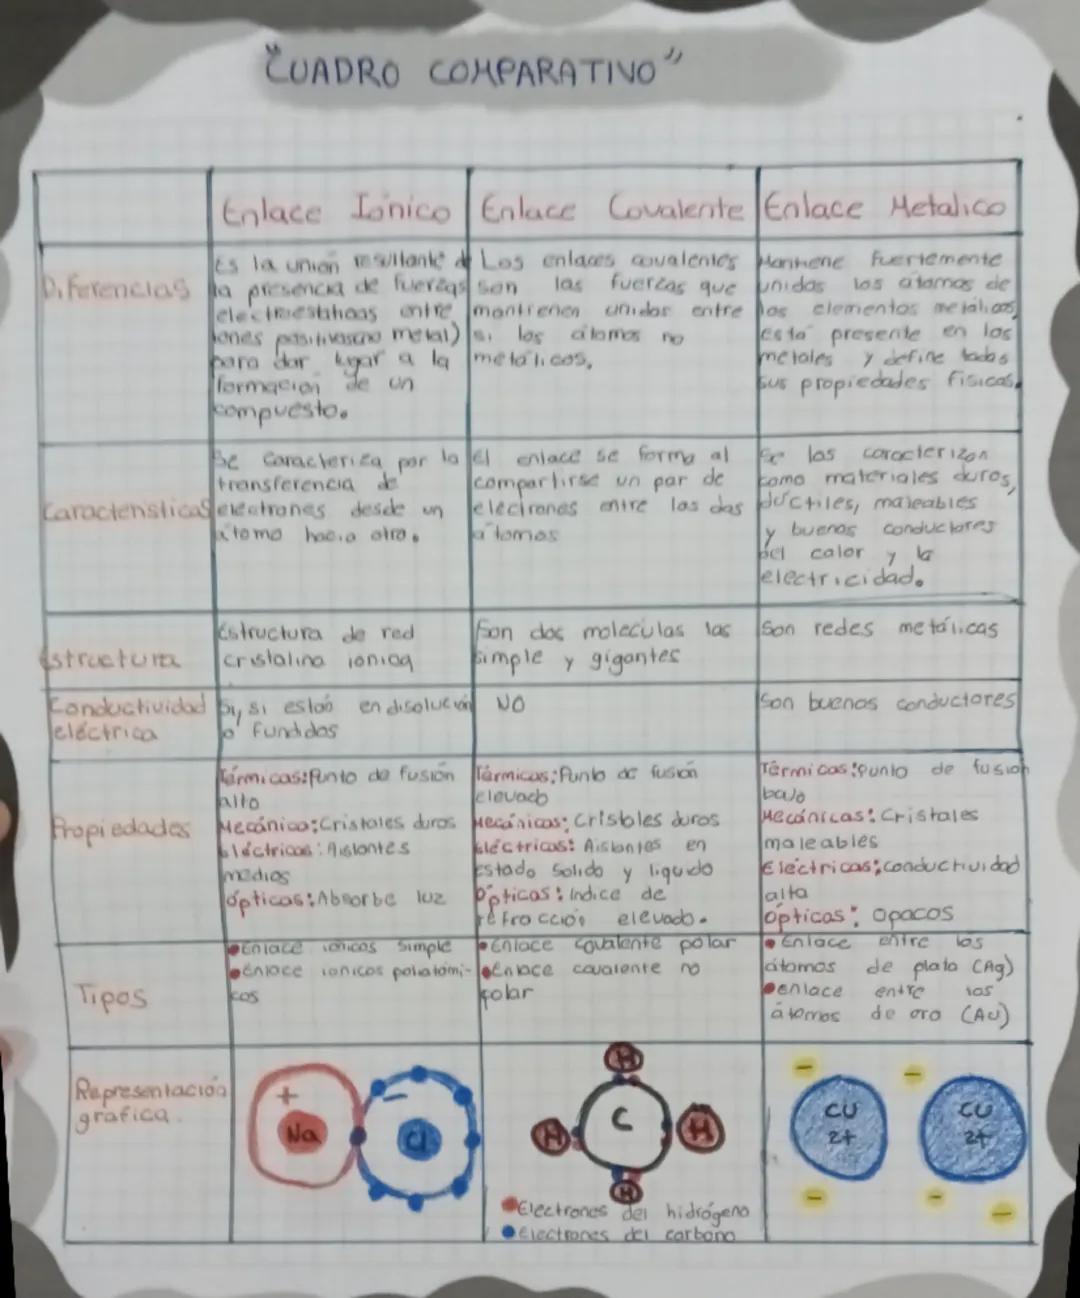 "CUADRO COMPARATIVO"
Enlace Iónico
Enlace Covalente
Enlace Metalico
Diferencias
Es la unión resultante d
la presencia de fuerzas
electrestáticas entre
iones metal)
para dar lugar a la
formacion de un
compuesto.
Los enlaces covalentes
son las fuerzas que
mantienen unidos entre
si los átomos no
metálicos.
Mantiene fuertemente
unidos los átomos de
los elementos metálicos,
está presente en los
metales y define todas
sus propiedades fisicas.
Caracteristicas
Se caracteriza por la
transferencia de
electrones desde un
átomo hacia otro.
El enlace se forma al
compartirse un par de
electrones entre los dos
átomos
Se los caracterizan
como materiales duros,
dúctiles, maleables
y buenos conductores
del calor y la
electricidad.
Estructura
Estructura de red
cristalina ionica
Son dos moleculas las
simple y gigantes
Son redes metálicas
Conductividad
eléctrica
Si, si están en disolución
o fundidos
NO
Son buenos conductores
Propiedades
Térmicas: Punto de fusión
alto
Mecánico: Cristales duros
Eléctricos: Aislantes
medios
ópticas: Absorbe luz
Térmicas: Punto de fusión
elevado
Mecánicas: Cristales duros
Eléctricas: Aislantes en
Estado Solido y liquido
Ópticas: Indice de
refracción elevado.
Térmicas: Punto de fusion
bajo
Mecánicas: Cristales
maleables
Eléctricas: conductividad
alta
Ópticas: Opacos
Tipos
•Enlace iónicos simple
•Enlace ionicos poliatómi-
cos
•Enlace covalente polar
•Enlace covalente no
polar
•Enlace entre los
átomos de plata (Ag)
•enlace entre los
átomos de oro (AU)
Representación
gráfica.
+
Na
-
Cl
H
H
C
H
H
•Electrones del hidrógeno
•Electrones del carbono
-
-
CU
2+
CU
2+
-
-
-